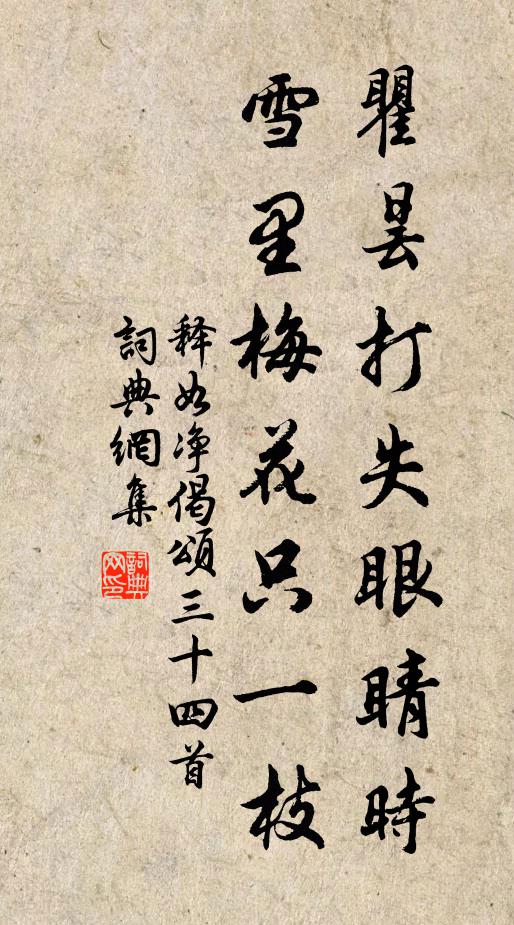 瞿昙打失眼睛時
雪里梅花只一枝
释如净偈頌三十四首
詞典網集
詞典
网印